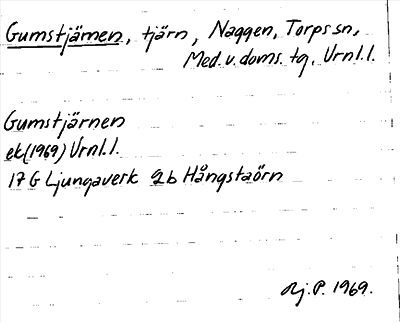 Gumstjärnen, tjärn, Naggen, Torps sn,
Med. v. doms. tg. Vrnl.l.
Gumstjärnen
ek(1969) Vrnl.l.
17 G Ljungaverk 2b Hångstaörn
Rj. P. 1969.